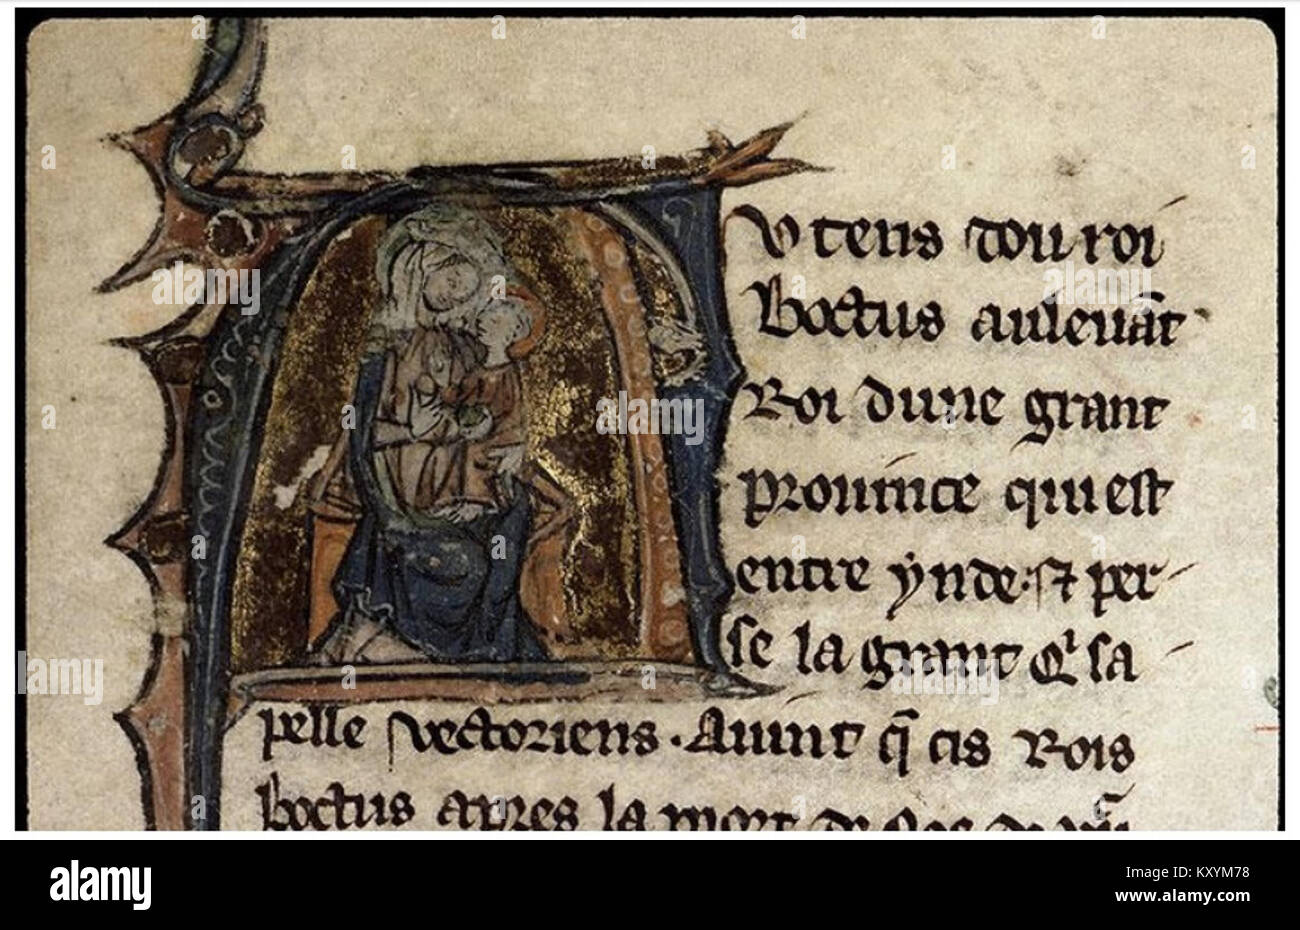 A
U tens dou roi
Boctus au leuāt
Roi dune grant
prouince qui est
entre ynde · ⁊ per-
se la grant q sa
pelle vectoriens · Auint q̄ cis Rois
Boctus apres la mort de
a
alamy
Image ID: KXYM78
www.alamy.com